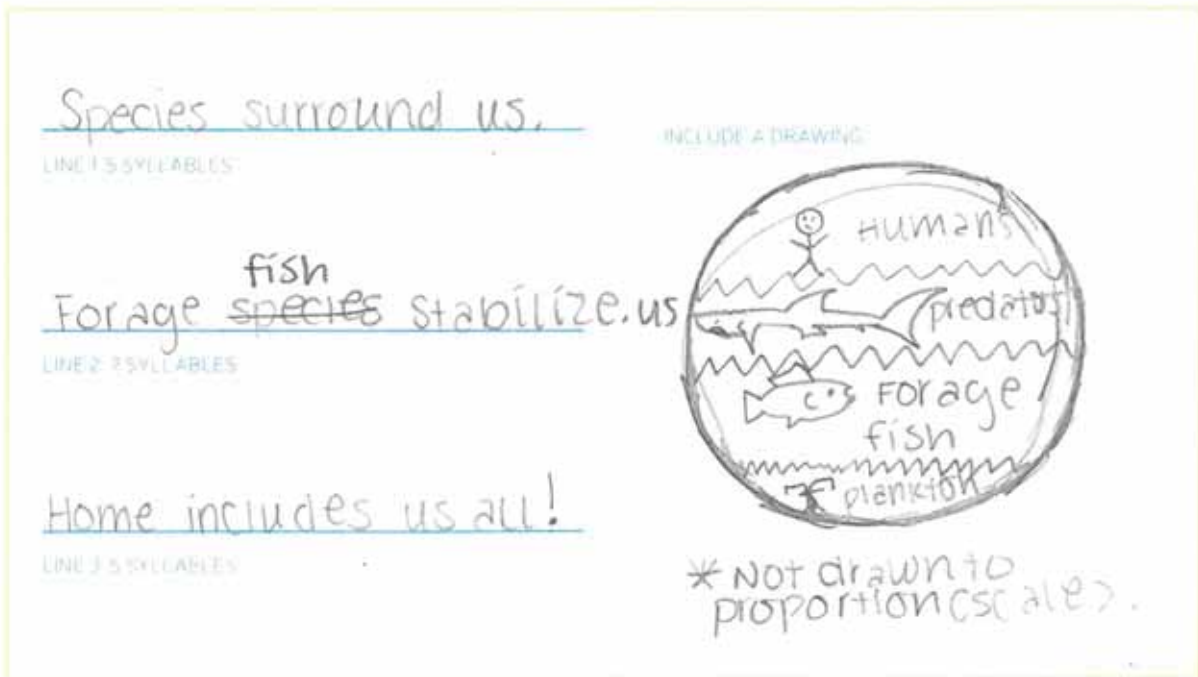 Species surround us.
LINE 1 5 SYLLABLES
INCLUDE A DRAWING
fish
Forage species stabilize.us
LINE 2 7 SYLLABLES
Home includes us all!
LINE 3 5 SYLLABLES
Humans
predators
Forage
fish
plankton
* Not drawn to
proportion (scale).